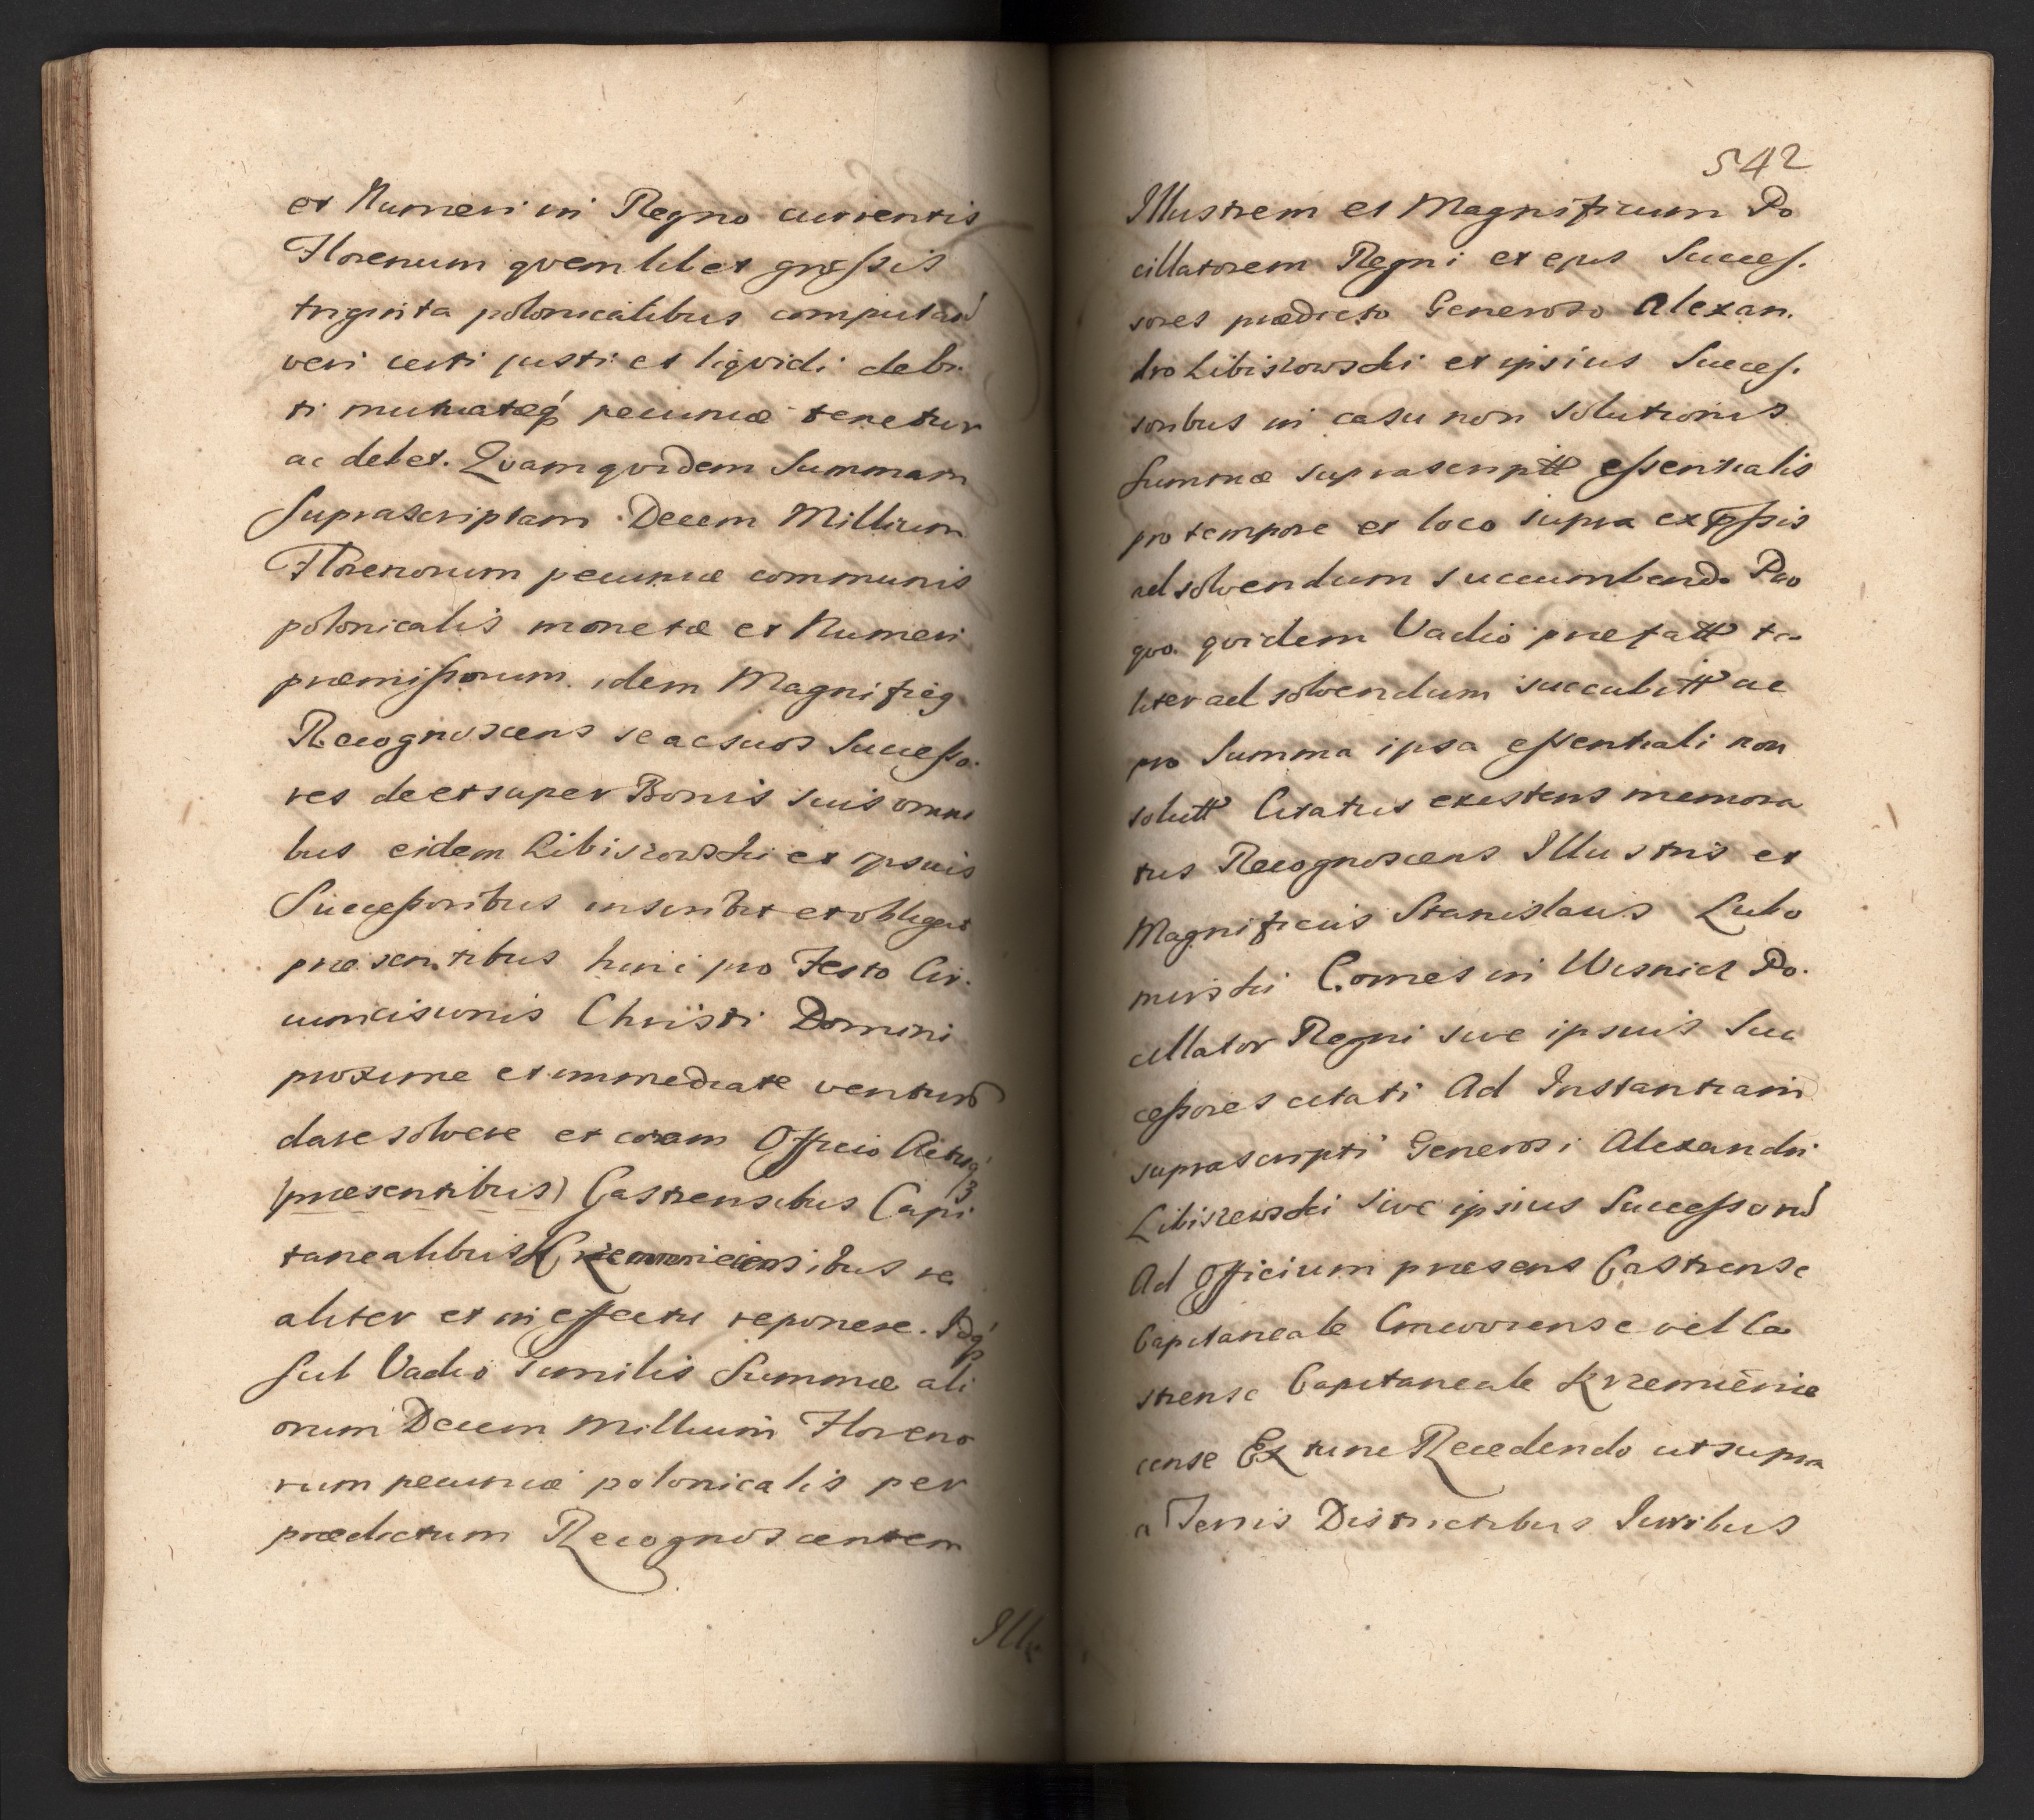 et Numeri in Regno currentis
Florenum qvemlibet grossis
triginta polonicalibus computań
veri certi justi et liqvidi debi-
ti mutuatæq́ pecuniæ tenetur
ac debet. Qvam qvidem Summam
Suprascriptam Decem Millium
Florenorum pecuniæ communis
polonicalis monetæ et Numeri
præmissorum idem Magnificq
Recognoscens se ac suos Successo-
res de et super Bonis suis omni
bus eidem Libiszowski et ipsius
Successoribus inscribit et obligat
præsentibus hinc pro Festo Cir-
cumcisionis Christi Domini
proxime et immediate venturo
dare solvere et coram Officio Actisq́
(præsentibus) Castrensibus Capi
tanealibus Kremeniecensibus re
aliter et in effectu reponere. Idq́
Sub Vadio similis Summæ ali
orum Decem Millium Floreno
rum pecuniæ polonicalis per
prædictum Recognoscentem
Illu
542
Illustrem et Magnificum Po
cillatorem Regni et ejus Succes-
sores prædicto Generoso Alexan-
dro Libiszowski et ipsius Succes-
soribus in casu non solutionis
Summæ suprascriptæ essentialis
pro tempore et loco supra expssis
ad solvendum succumbendo Pro
qvo qvidem Vadio præfatt ta-
liter ad solvendum succubitt ac
pro Summa ipsa essentiali non
solutt Citatus existens memora
tus Recognoscens Illustris et
Magnificus Stanislaus Lubo
mirski Comes in Wisnicz Po-
cillator Regni sive ipsius Suc
cessores citati Ad Instantiam
suprascripti Generosi Alexandri
Libiszewski sive ipsius Successorū
Ad Officium præsens Castrense
Capitaneale Cracoviense vel Ca
strense Capitaneale Krzemienie
cense Ex tunc Recedendo ut supra
a Terris Districtibus Juribus